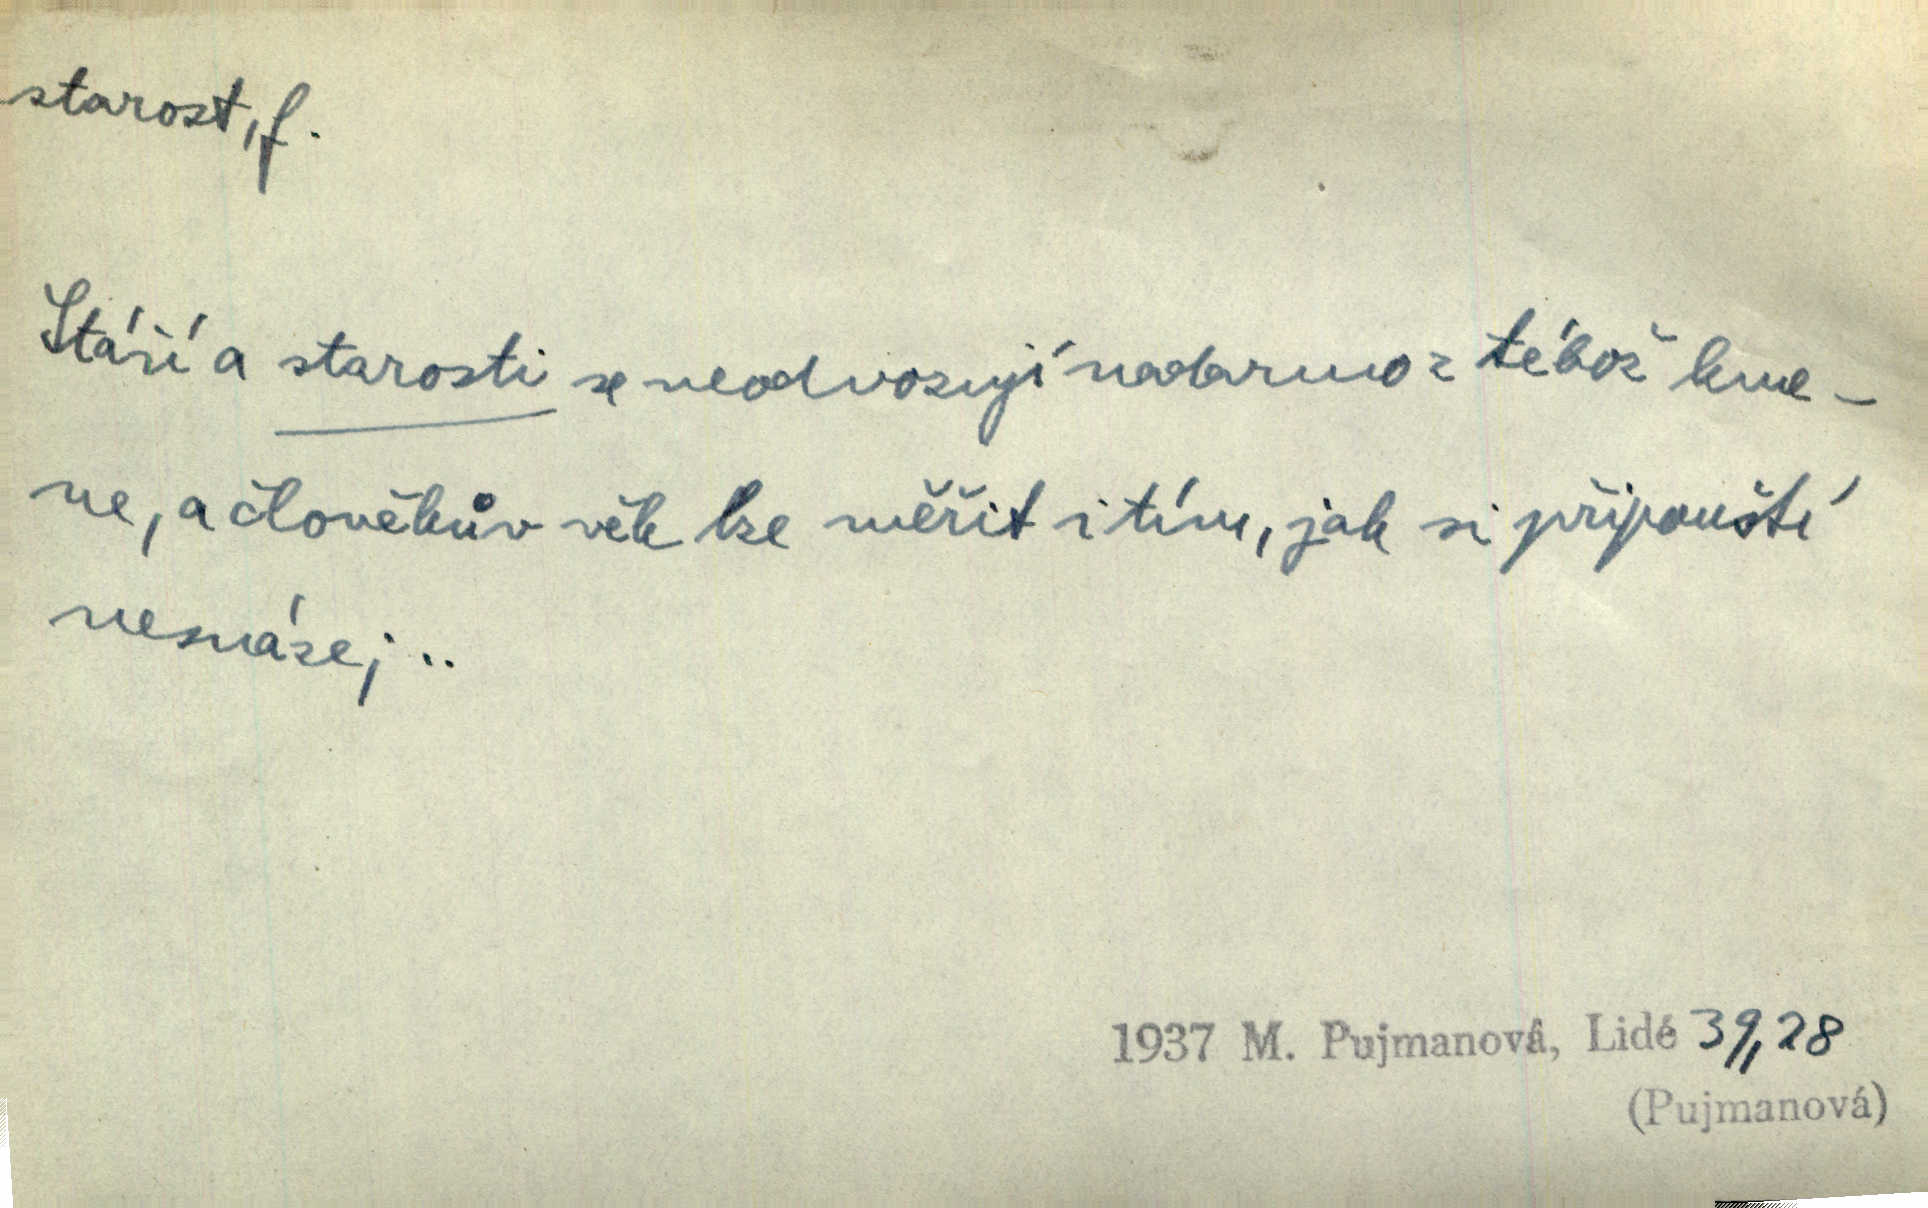 starost, f.
Stáří a starosti se neodvozují nadarmo z téhož kme-
ne, a člověkův věk lze měřit i tím, jak si připouští
nesnáze; ..
1937 M. Pujmanová, Lidé 39,28
(Pujmanová)